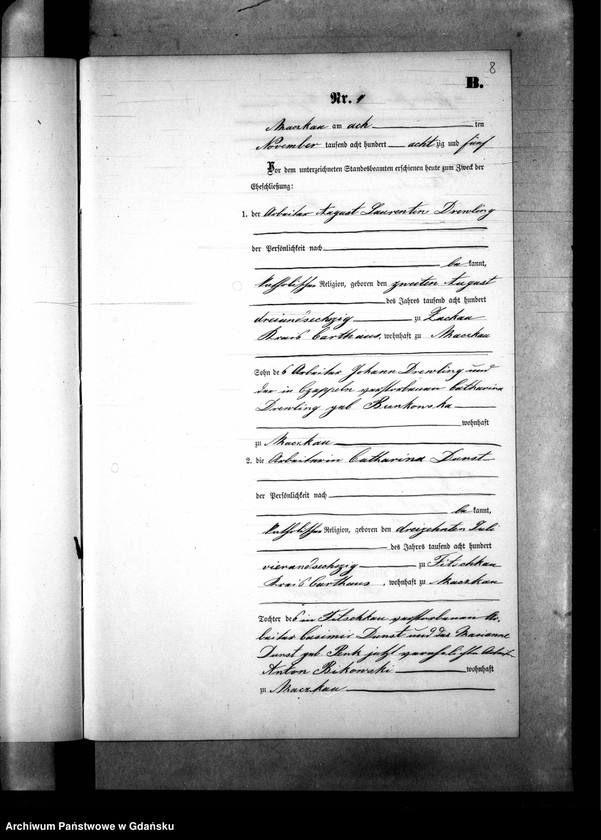 8
B.
Nr. 1
Maczkau am ach ten
November tausend acht hundert achtzig und fünf
Vor dem unterzeichneten Standesbeamten erschienen heute zum Zweck der
Eheschließung:
1. der Arbeiter August Laurentin Drewling
der Persönlichkeit nach
be kannt,
katholischer Religion, geboren den zweiten August
des Jahres tausend acht hundert
dreiundsechzig zu Zackau
Kreis Carthaus, wohnhaft zu Maczkau
Sohn des Arbeiter Johann Drewling und
der in Czappeln verstorbenen Catharina
Drewling geb. Bunkowska
wohnhaft
zu Maczkau
2. die Arbeiterin Catharina Dunst
der Persönlichkeit nach
be kannt,
katholischer Religion, geboren den dreizehnten Juli
des Jahres tausend acht hundert
vierundsechzig zu Fitschkau
Kreis Carthaus, wohnhaft zu Maczkau
Tochter des in Fitschkau verstorbenen Ar-
beiter Casimir Dunst und der Marianne
Dunst geb. Penk jetzt verehelichte Arbeiter
Anton Bikowski wohnhaft
zu Maczkau
Archiwum Państwowe w Gdańsku